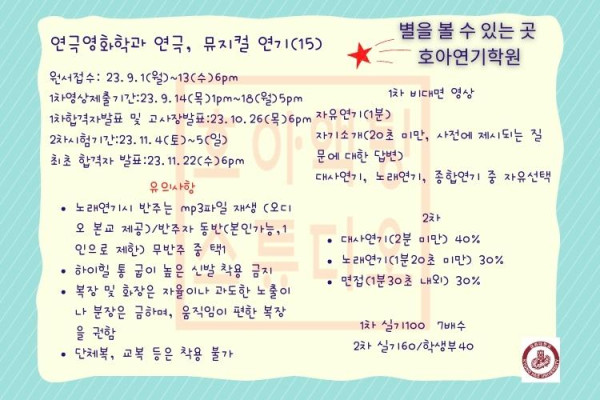 연극영화학과 연극, 뮤지컬 연기(15)
별을 볼 수 있는 곳
호아연기학원
원서접수: 23.9.1(월)~13(수)6pm
1차영상제출기간:23.9.14(목)1pm~18(월)5pm
1차합격자발표 및 고사장발표:23.10.26(목)6pm
2차시험기간:23.11.4(토)~5(일)
최초 합격자 발표:23.11.22(수)6pm
유의사항
• 노래연기시 반주는 mp3파일 재생 (오디
오 본교 제공)/반주자 동반(본인가능,1
인으로 제한) 무반주 중 택1
• 하이힐 통 굽이 높은 신발 착용 금지
• 복장 및 화장은 자율이나 과도한 노출이
나 분장은 금하며, 움직임이 편한 복장
을 권함
• 단체복, 교복 등은 착용 불가
1차 비대면 영상
자유연기(1분)
자기소개(20초 미만, 사전에 제시되는 질
문에 대한 답변)
대사연기, 노래연기, 종합연기 중 자유선택
2차
• 대사연기(2분 미만) 40%
• 노래연기(1분20초 미만) 30%
• 면접(1분30초 내외) 30%
1차 실기100 7배수
2차 실기60/학생부40
호아액팅
스튜디오